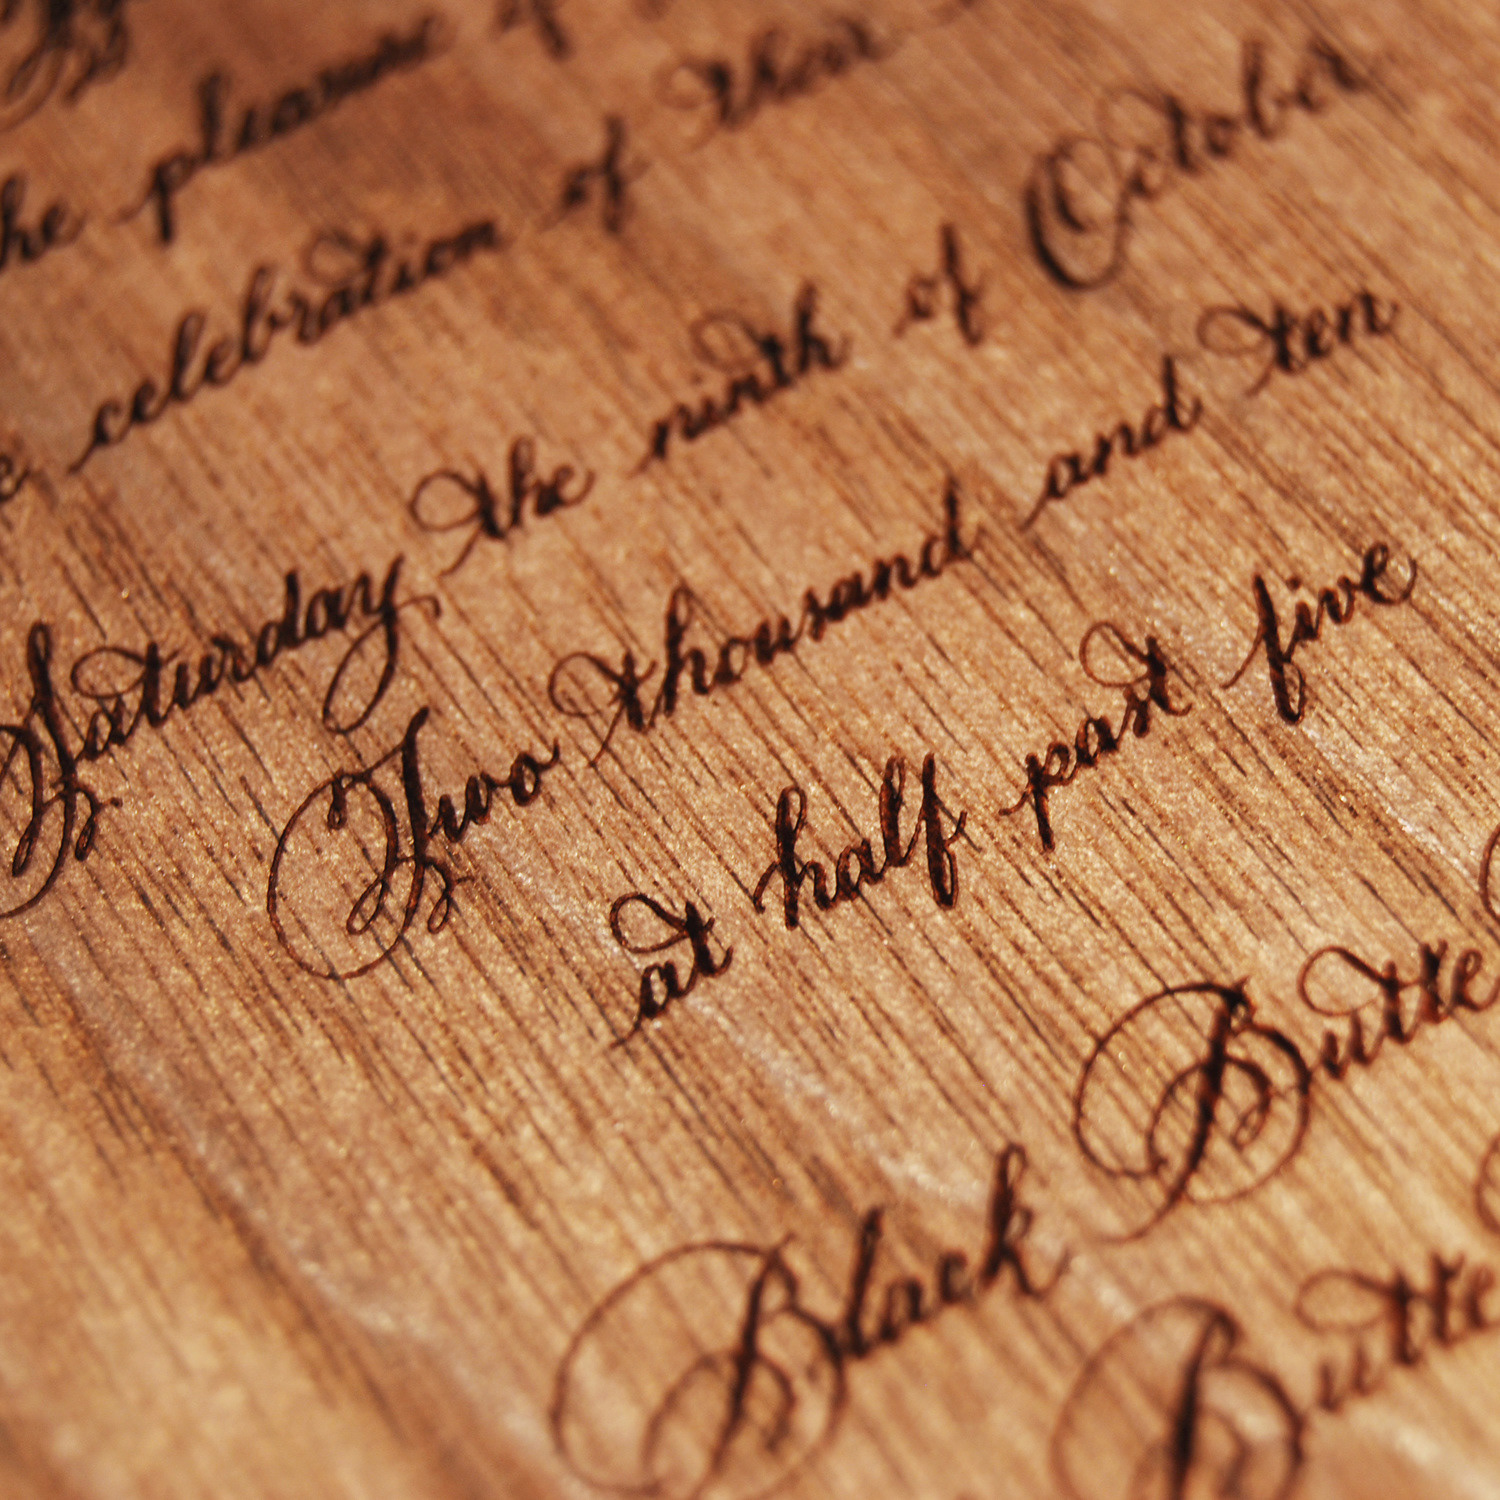 the pleasure of
celebration of their
Saturday the ninth of October
Two thousand and ten
at half past five
Black Butte
Butte